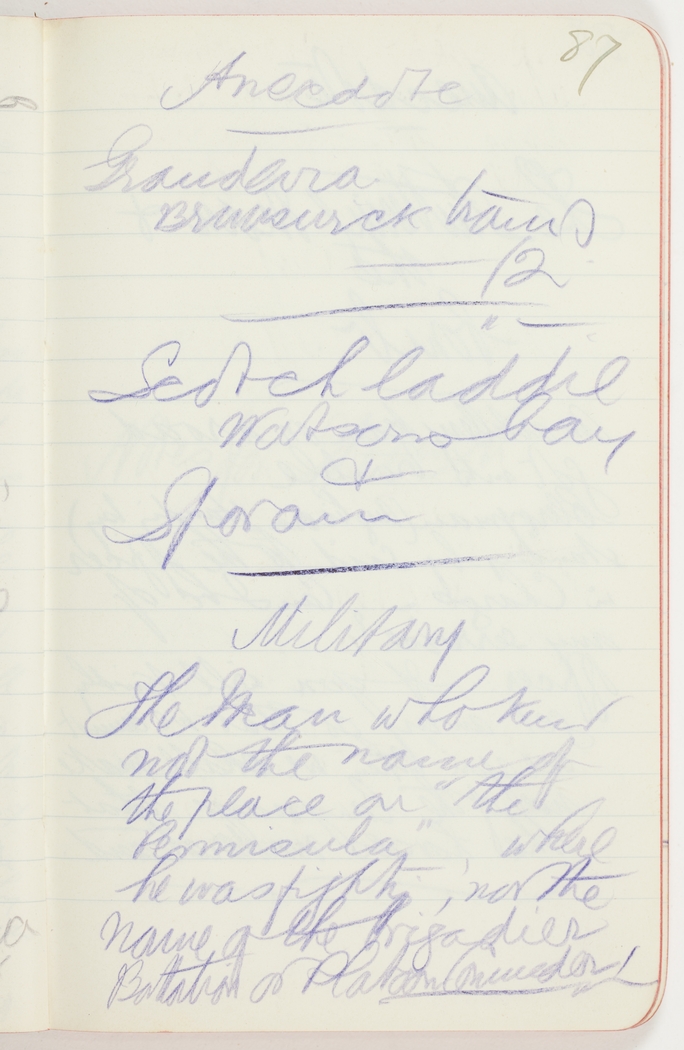 87
Anecdote
Grandevia
Brunswick trams
12
"
Scotch laddie
Watsons bay
&
Sporain
Military
The Man who knew
not the name of
the place on "the
Peninsula" where
he was fighting, nor the
name of the brigadier
Battalion or Platoon Commander